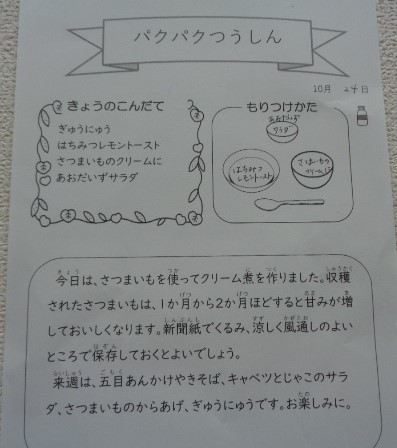 パクパクつうしん
10月 24日
きょうのこんだて
ぎゅうにゅう
はちみつレモントースト
さつまいものクリームに
あおだいずサラダ
もりつけかた
あおだいず
サラダ
はちみつ
レモントースト
さつまいもの
クリームに
今日は、さつまいもを使ってクリーム煮を作りました。収穫
されたさつまいもは、1か月から2か月ほどすると甘みが増
しておいしくなります。新聞紙でくるみ、涼しく風通しのよい
ところで保存しておくとよいでしょう。
来週は、五目あんかけやきそば、キャベツとじゃこのサラ
ダ、さつまいものからあげ、ぎゅうにゅうです。お楽しみに。